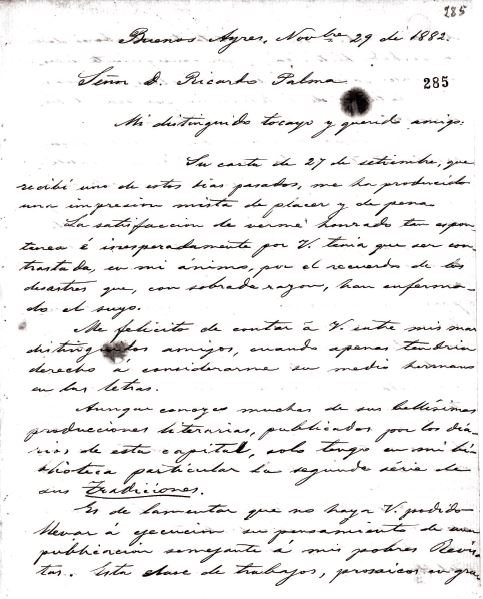 285
Buenos Ayres, Novbre 29 de 1882.
Señor D. Ricardo Palma
285
Mi distinguido tocayo y querido amigo:
Su carta de 27 de setiembre, que
recibí uno de estos dias pasados, me ha producido
una impresion mista de placer y de pena
La satisfaccion de verme honrado tan espon-
tanea é inesperadamente por V. tenia que ser con-
trastada, en mi ánimo, por el recuerdo de los
desastres que, con sobrada razon, han enferma-
do el suyo.
Me felicito de contar á V. entre mis mas
distinguidos amigos, cuando apenas tendria
derecho á considerarme su medio hermano
en las letras.
Aunque conozco muchas de sus bellísimas
producciones literarias, publicadas por los dia-
rios de esta capital, solo tengo en mi bi-
blioteca particular la segunda série de
sus Tradiciones.
Es de lamentar que no haya V. podido
llevar á ejecucion su pensamiento de una
publicacion semejante á mis pobres Revis-
tas. Esta clase de trabajos, prosaicos en gran